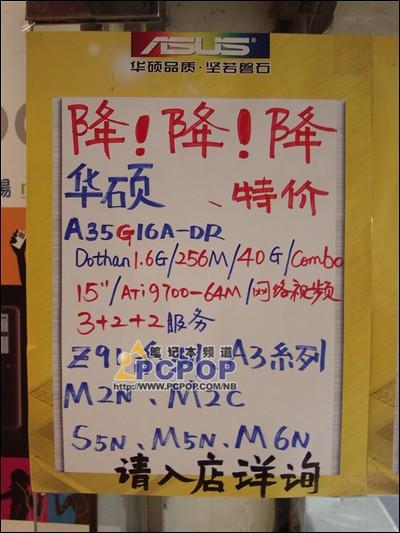 ASUS
华硕品质·坚若磐石
降!降!降
华硕、特价
A35G16A-DR
Dothan1.6G/256M/40G/Combo
15"/ATi9700-64M/网络视频
3+2+2服务
Z91 A3系列
笔记本频道
PCPOP
http://www.PCPOP.COM/NB
M2N、M2C
S5N、M5N、M6N
请入店详询